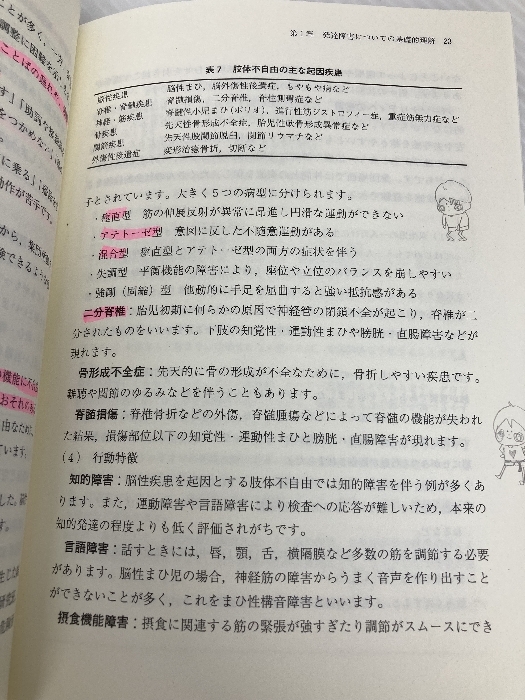 第1章 発達障害についての基礎的理解 23
表7 肢体不自由の主な起因疾患
脳性疾患 脳性まひ，脳外傷性後遺症，もやもや病など
脊椎・脊髄疾患 脊髄損傷，二分脊椎，脊柱側彎症など
神経・筋疾患 脊髄性小児まひ(ポリオ)，進行性筋ジストロフィー症，重症筋無力症など
骨疾患 先天性骨形成不全症，胎児性軟骨形成異常症など
関節疾患 先天性股関節脱臼，関節リウマチなど
外傷性後遺症 変形治癒骨折，切断など
子とされています。大きく5つの病型に分けられます。
・痙直型 筋の伸展反射が異常に昂進し円滑な運動ができない
・アテトーゼ型 意図に反した不随意運動がある
・混合型 痙直型とアテトーゼ型の両方の症状を伴う
・失調型 平衡機能の障害により，座位や立位のバランスを崩しやすい
・強剛（固縮）型 他動的に手足を屈曲すると強い抵抗感がある
二分脊椎：胎児初期に何らかの原因で神経管の閉鎖不全が起こり，脊椎が二
分されたものをいいます。下肢の知覚性・運動性まひや膀胱・直腸障害などが
現れます。
骨形成不全症：先天的に骨の形成が不全なために，骨折しやすい疾患です。
難聴や関節のゆるみなどを伴うこともあります。
脊髄損傷：脊椎骨折などの外傷，脊髄腫瘍などによって脊髄の機能が失われ
た結果，損傷部位以下の知覚性・運動性まひと膀胱・直腸障害が現れます。
（4） 行動特徴
知的障害：脳性疾患を起因とする肢体不自由では知的障害を伴う例が多くあ
ります。また，運動障害や言語障害により検査への応答が難しいため，本来の
知的発達の程度よりも低く評価されがちです。
言語障害：話すときには，唇，顎，舌，横隔膜など多数の筋を調節する必要
があります。脳性まひ児の場合，神経筋の障害からうまく音声を作り出すこと
ができないことが多く，これをまひ性構音障害といいます。
摂食機能障害：摂食に関連する筋の緊張が強すぎたり調節がスムースにでき